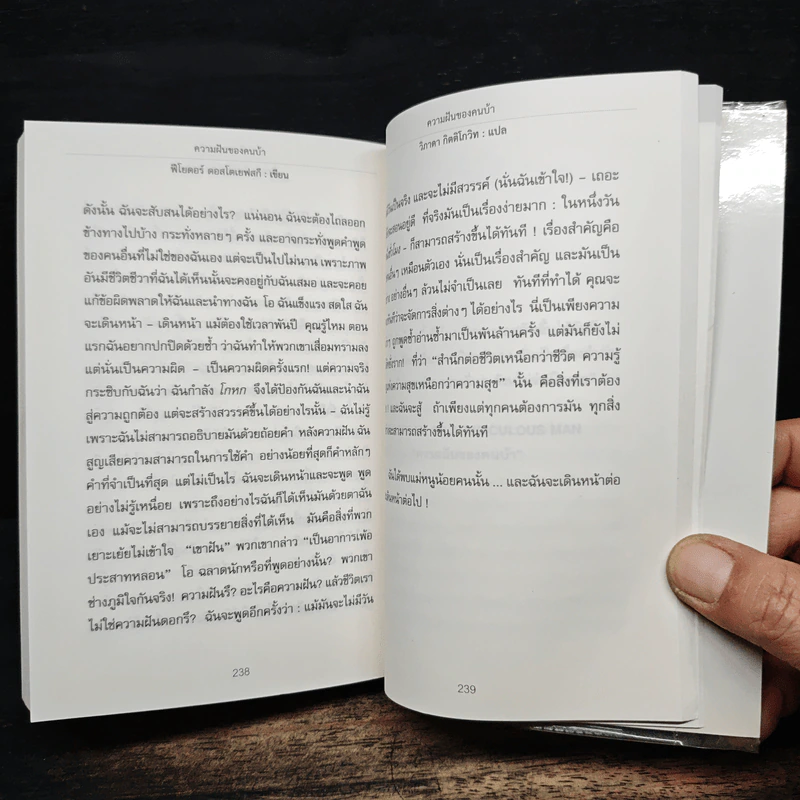 ความฝันของคนบ้า
ฟีโยดอร์ ดอสโตเยฟสกี : เขียน
ดังนั้น ฉันจะสับสนได้อย่างไร? แน่นอน ฉันจะต้องไถลออก
ข้างทางไปบ้าง กระทั่งหลายๆ ครั้ง และอาจกระทั่งพูดคำพูด
ของคนอื่นที่ไม่ใช่ของฉันเอง แต่จะเป็นไปไม่นาน เพราะภาพ
อันมีชีวิตชีวาที่ฉันได้เห็นนั้นจะคงอยู่กับฉันเสมอ และจะคอย
แก้ข้อผิดพลาดให้ฉันและนำทางฉัน โอ ฉันแข็งแรง สดใส ฉัน
จะเดินหน้า – เดินหน้า แม้ต้องใช้เวลาพันปี คุณรู้ไหม ตอน
แรกฉันอยากปกปิดด้วยซ้ำ ว่าฉันทำให้พวกเขาเสื่อมทรามลง
แต่นั่นเป็นความผิด – เป็นความผิดครั้งแรก! แต่ความจริง
กระซิบกับฉันว่า ฉันกำลัง โกหก จึงได้ป้องกันฉันและนำฉัน
สู่ความถูกต้อง แต่จะสร้างสวรรค์ขึ้นได้อย่างไรนั้น – ฉันไม่รู้
เพราะฉันไม่สามารถอธิบายมันด้วยถ้อยคำ หลังความฝัน ฉัน
สูญเสียความสามารถในการใช้คำ อย่างน้อยที่สุดก็คำหลักๆ
คำที่จำเป็นที่สุด แต่ไม่เป็นไร ฉันจะเดินหน้าและจะพูด พูด
อย่างไม่รู้เหนื่อย เพราะถึงอย่างไรฉันก็ได้เห็นมันด้วยตาฉัน
เอง แม้จะไม่สามารถบรรยายสิ่งที่ได้เห็น มันคือสิ่งที่พวก
เยาะเย้ยไม่เข้าใจ “เขาฝัน” พวกเขากล่าว “เป็นอาการเพ้อ
ประสาทหลอน” โอ ฉลาดนักหรือที่พูดอย่างนั้น? พวกเขา
ช่างภูมิใจกันจริง! ความฝันรึ? อะไรคือความฝัน? แล้วชีวิตเรา
ไม่ใช่ความฝันดอกรึ? ฉันจะพูดอีกครั้งว่า : แม้มันจะไม่มีวัน
238
ความฝันของคนบ้า
วิภาดา กิตติโกวิท : แปล
เป็นจริง และจะไม่มีสวรรค์ (นั่นฉันเข้าใจ!) – เถอะ
อยู่ดี ที่จริงมันเป็นเรื่องง่ายมาก : ในหนึ่งวัน
- ก็สามารถสร้างขึ้นได้ทันที ! เรื่องสำคัญคือ
เหมือนตัวเอง นั่นเป็นเรื่องสำคัญ และมันเป็น
อย่างอื่นๆ ล้วนไม่จำเป็นเลย ทันทีที่ทำได้ คุณจะ
ว่าจะจัดการสิ่งต่างๆ ได้อย่างไร นี่เป็นเพียงความ
ถูกพูดซ้ำอ่านซ้ำมาเป็นพันล้านครั้ง แต่มันก็ยังไม่
ที่ว่า “สำนึกต่อชีวิตเหนือกว่าชีวิต ความรู้
แห่งความสุขเหนือกว่าความสุข” นั้น คือสิ่งที่เราต้อง
และฉันจะสู้ ถ้าเพียงแต่ทุกคนต้องการมัน ทุกสิ่ง
จะสามารถสร้างขึ้นได้ทันที
ฉันได้พบแม่หนูน้อยคนนั้น ... และฉันจะเดินหน้าต่อ
ต่อไป !
239